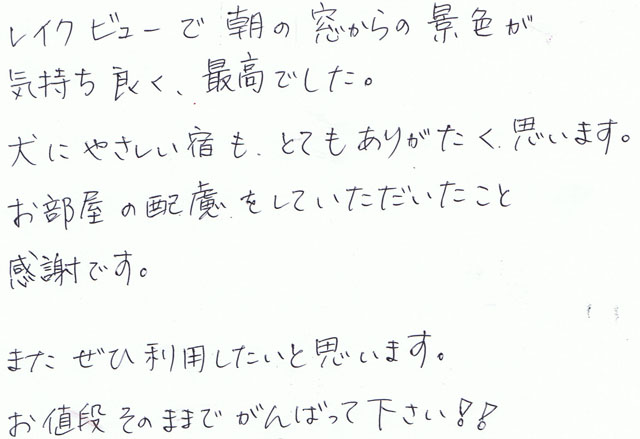 レイクビューで朝の窓からの景色が
気持ち良く、最高でした。
犬にやさしい宿も、とてもありがたく、思います。
お部屋の配慮をしていただいたこと
感謝です。
またぜひ利用したいと思います。
お値段そのままでがんばって下さい!!